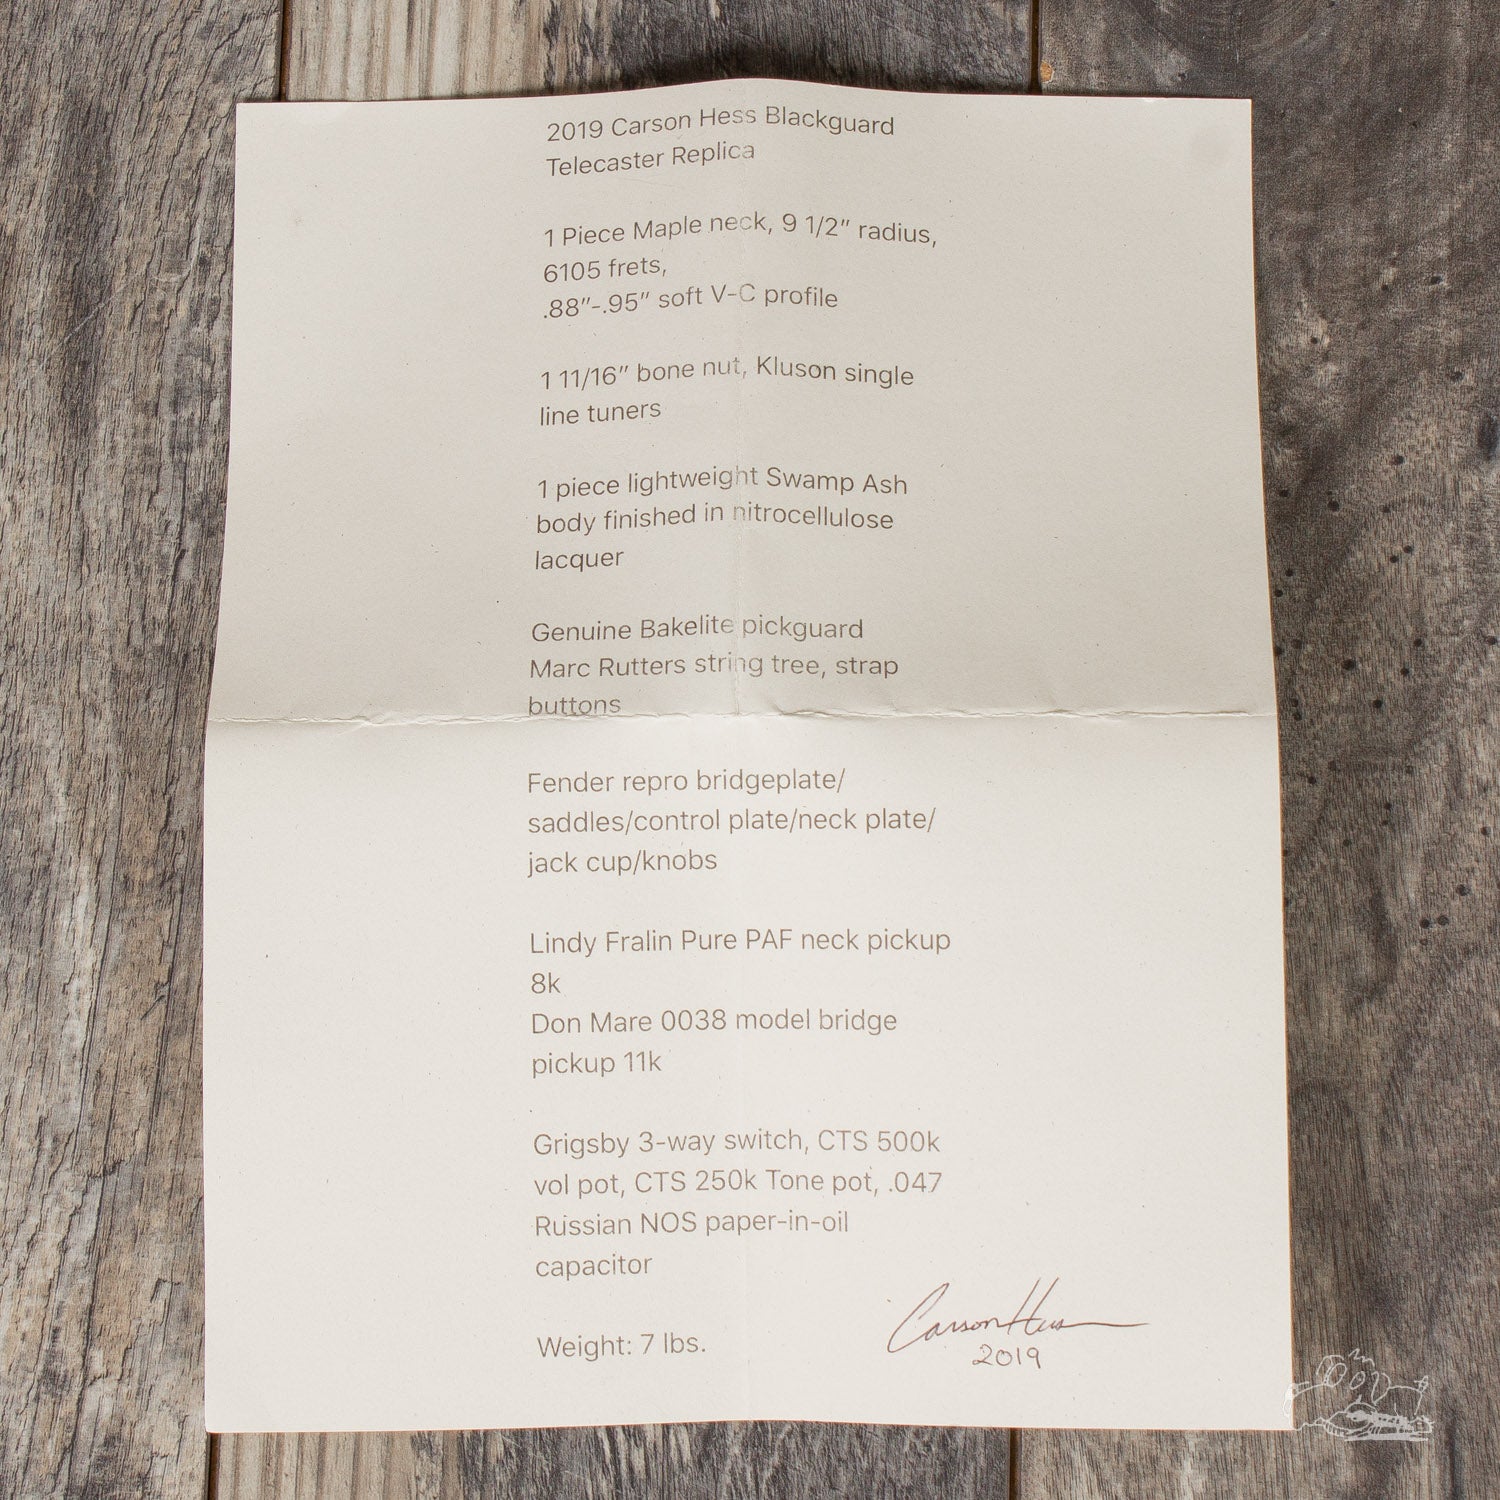 2019 Carson Hess Blackguard
Telecaster Replica
1 Piece Maple neck, 9 1/2" radius,
6105 frets,
.88"-.95" soft V-C profile
1 11/16" bone nut, Kluson single
line tuners
1 piece lightweight Swamp Ash
body finished in nitrocellulose
lacquer
Genuine Bakelite pickguard
Marc Rutters string tree, strap
buttons
Fender repro bridgeplate/
saddles/control plate/neck plate/
jack cup/knobs
Lindy Fralin Pure PAF neck pickup
8k
Don Mare 0038 model bridge
pickup 11k
Grigsby 3-way switch, CTS 500k
vol pot, CTS 250k Tone pot, .047
Russian NOS paper-in-oil
capacitor
Weight: 7 lbs.
Carson Hess
2019